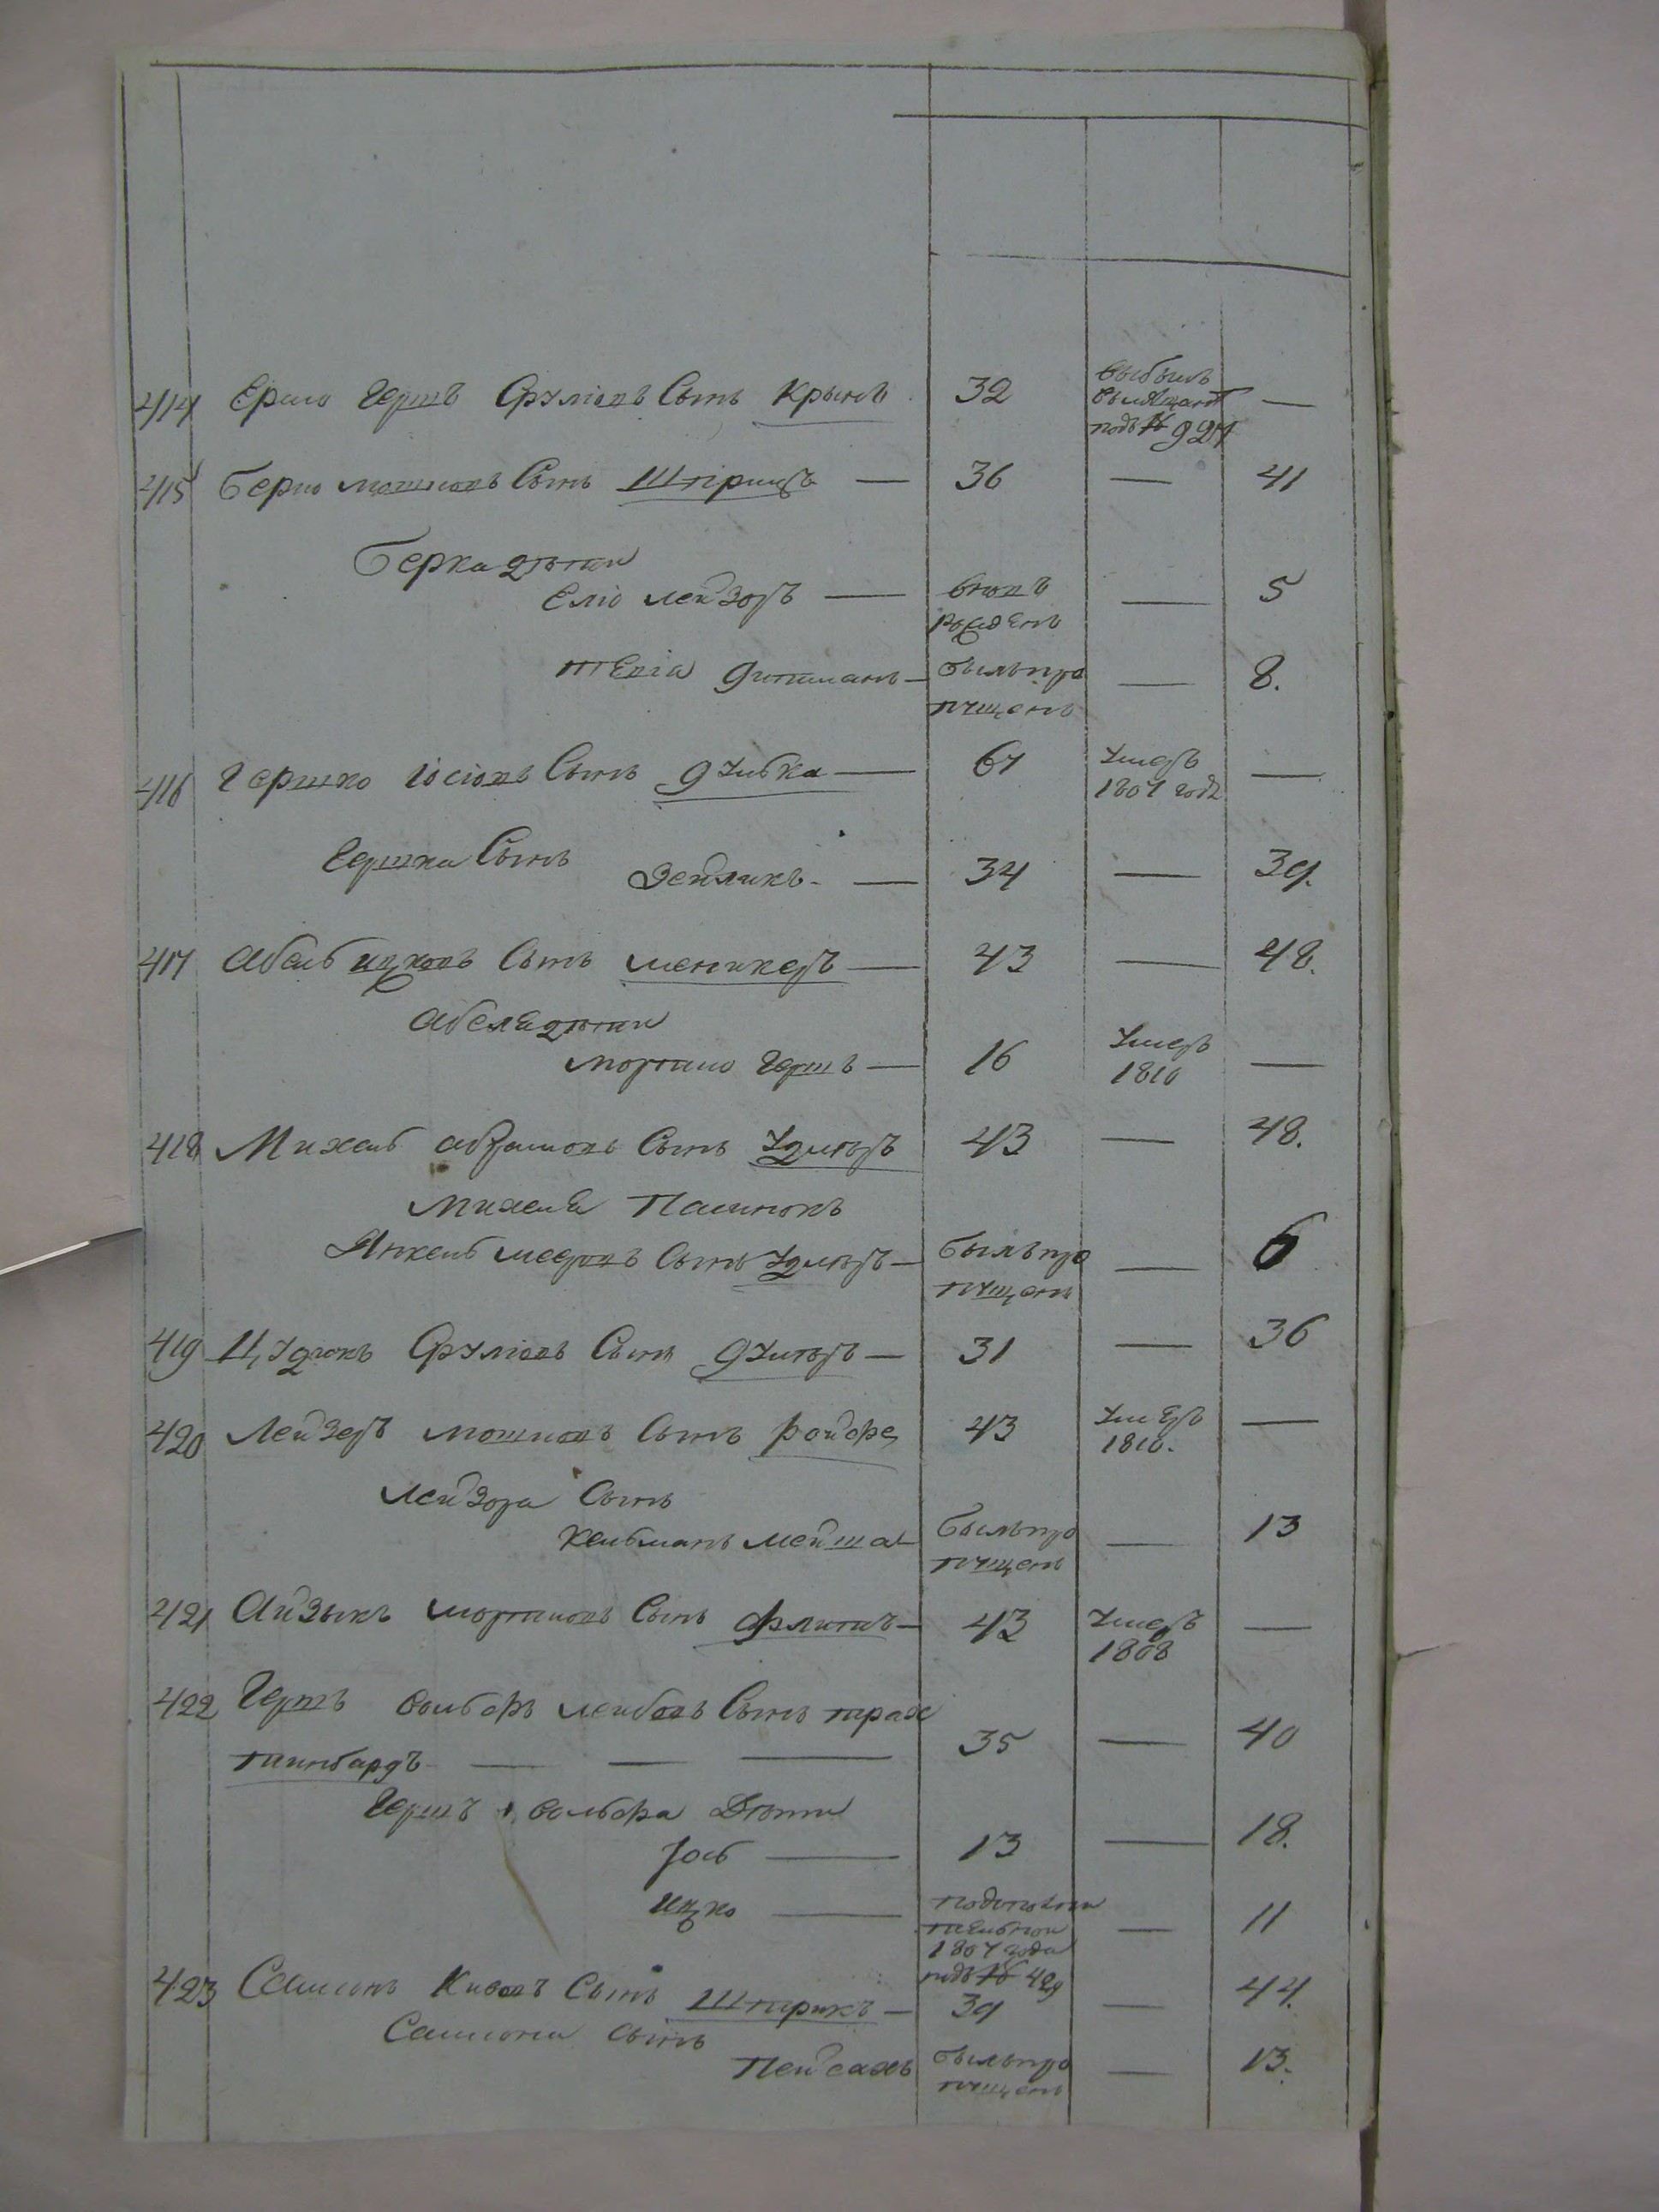 414 Ерш Гершъ Срулiовъ Сынъ Крынъ 32 выбылъ —
подъ № 927
415 Берко мошковъ Сынъ Штiринъ — 36 — 41
Берка дѣти
Елiо лейзоръ — вновь рожденъ — 5
тевiя дитманъ — былъ пропущенъ — 8.
416 Гершко Iосiовъ Сынъ — 67 умеръ 1807 года —
Гершка Сынъ
Зейликъ — 34 — 39.
417 Абель ицковъ Сынъ меникеръ — 43 — 48.
Абеля дѣти
мортко Гершъ — 16 умеръ 1810 —
418 Михель абрамовъ Сынъ удлеръ 43 — 48.
Михеля Пасинокъ
Янкель мееровъ Сынъ удлеръ — былъ пропущенъ — 6
419 Цудикъ Срулiовъ Сынъ — 31 — 36
420 Лейзеръ мошковъ Сынъ ройфе 43 умеръ 1810. —
лейзора Сынъ
кельманъ мейша былъ пропущенъ — 13
421 Айзыкъ мортковъ Сынъ — 43 умеръ 1808 —
422 Гершъ вольфъ лейбовъ Сынъ трах
тинбардъ — — — 35 — 40
Гершъ вольфа Дѣти
Iось — 13 — 18.
ицко — 1807 года подъ № 429 — 11
423 Самсонъ Кивовъ Сынъ Штирикъ — 39 — 44.
Самсона Сынъ
Пейсахъ былъ пропущенъ — 13.